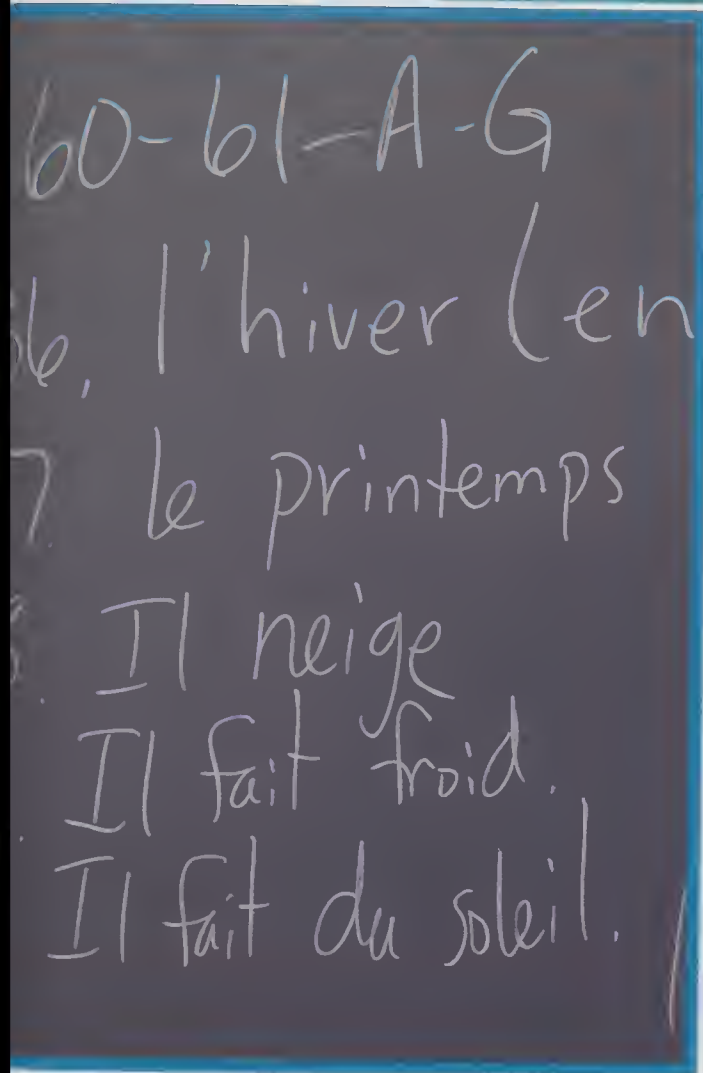 60-61-A-G
6, l'hiver (en
7 le printemps
Il neige
Il fait froid.
Il fait du soleil.